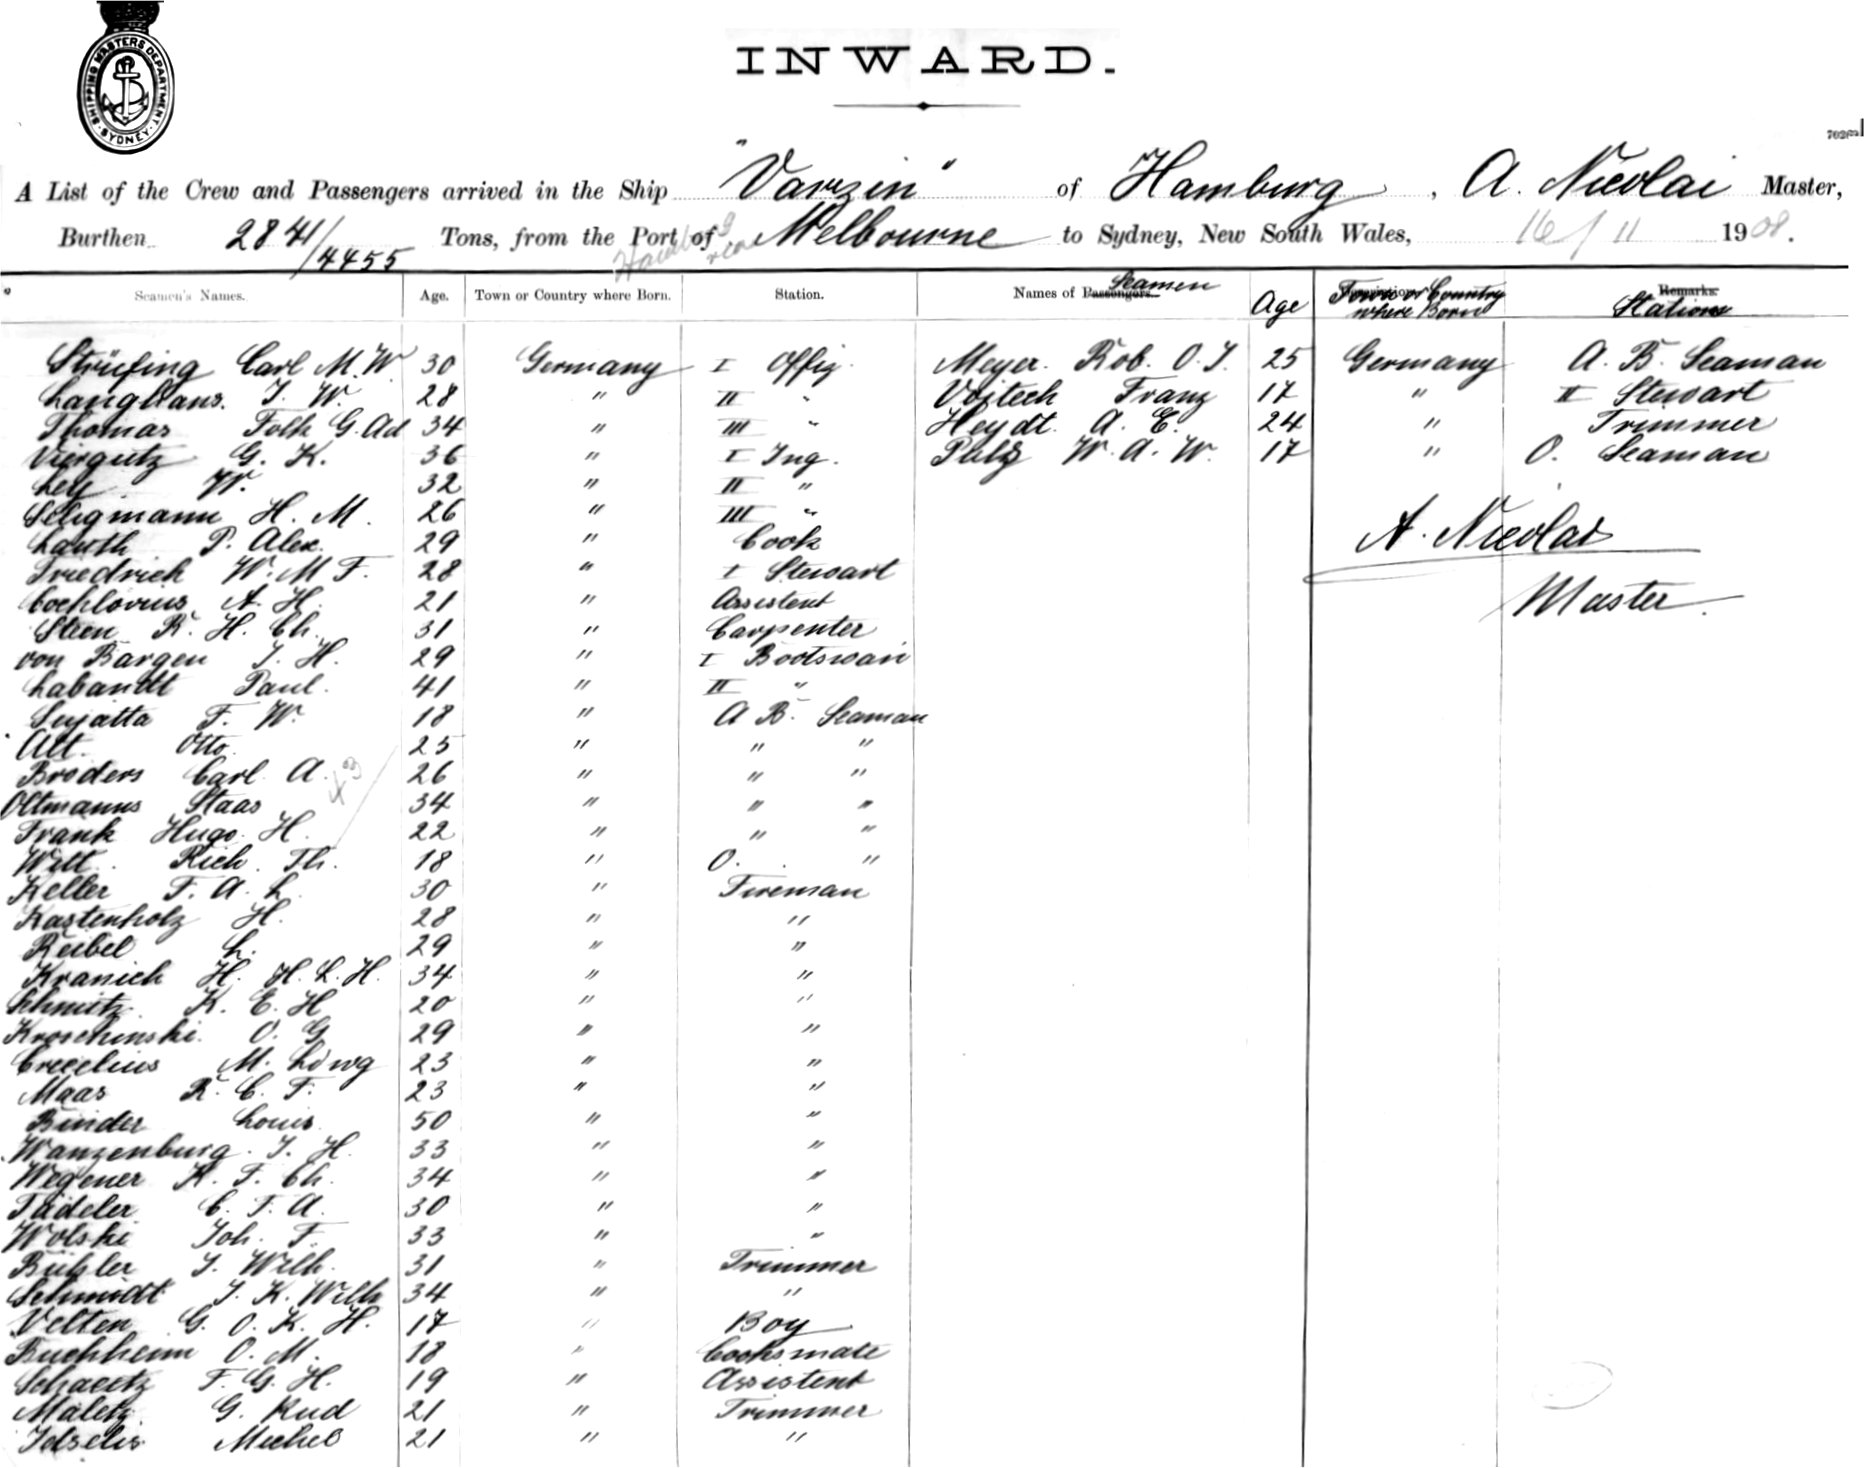 SHIPPING MASTERS DEPARTMENT SYDNEY
INWARD.
A List of the Crew and Passengers arrived in the Ship "Varzin" of Hamburg, A. Nicolai Master,
Burthen 2841/4455 Tons, from the Port of Melbourne to Sydney, New South Wales, 16/11 1908.
Seamen's Names. Age. Town or Country where Born. Station. Names of Passengers. Seamen Age Town or Country where Born Remarks. Stations
Strüfing Carl M. W 30 Germany I Offiz. Meyer. Rob. O. J. 25 Germany A. B. Seaman
Langhans. J. W. 28 " II " Voitech Franz 17 " II Stewart
Thomas Folk G. Ad 34 " III " Heydt. A. E. 24 " Trimmer
Viergutz G. K. 36 " I Ing. W. A. W. 17 " O. Seaman
Ley W. 32 " II "
Seligmann H. M. 26 " III "
Lauth P. Alex. 29 " Cook
Friedrich W. M F. 28 " I Stewart
Cochlovius A. H. 21 " Assistent
Steen R. H. Ch. 31 " Carpenter
von Bargen J. H. 29 " I Bootswain
Labandt Paul. 41 " II "
Sujatta F. W. 18 " A B. Seaman
Alt. Otto. 25 " " "
Broders Carl A. 26 " " "
Oltmanns Staas 34 " " "
Frank Hugo. H. 22 " " "
Witt. Rich. Th. 18 " O. "
Keller F. A. L. 30 " Fireman
Kastenholz H. 28 " "
Reibel L. 29 " "
Kranich H. H. L. H. 34 " "
Schmitz K. E. H 20 " "
Kroschinski. O. G 29 " "
Crecelius M. Ldwg 23 " "
Maas R. C. F. 23 " "
Binder Louis. 50 " "
Wanzenburg. J. H. 33 " "
Wegener K. F. Ch. 34 " "
Tädeler C. F. A. 30 " "
Wolski Joh. F. 33 " "
Bühler J. Wilh. 31 " Trimmer
Schmidt J. K. Wilh 34 " "
Velten G. O. K. H. 17 " Boy
Buchheim O. M. 18 " Cooksmate
Schaetz F. G. H. 19 " Assistent
Maletz G. Rud 21 " Trimmer
Michel 21 " "
A. Nicolai
Master.